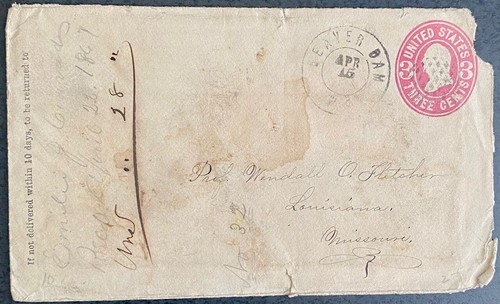 If not delivered within 10 days, to be returned to
Emilie
Recd April 22, 1867
Ans " 28 "
BEAVER DAM
APR
15
UNITED STATES
THREE CENTS
3
3
Prof Wendall O. Fletcher
Louisiana.
Missouri.
No 32